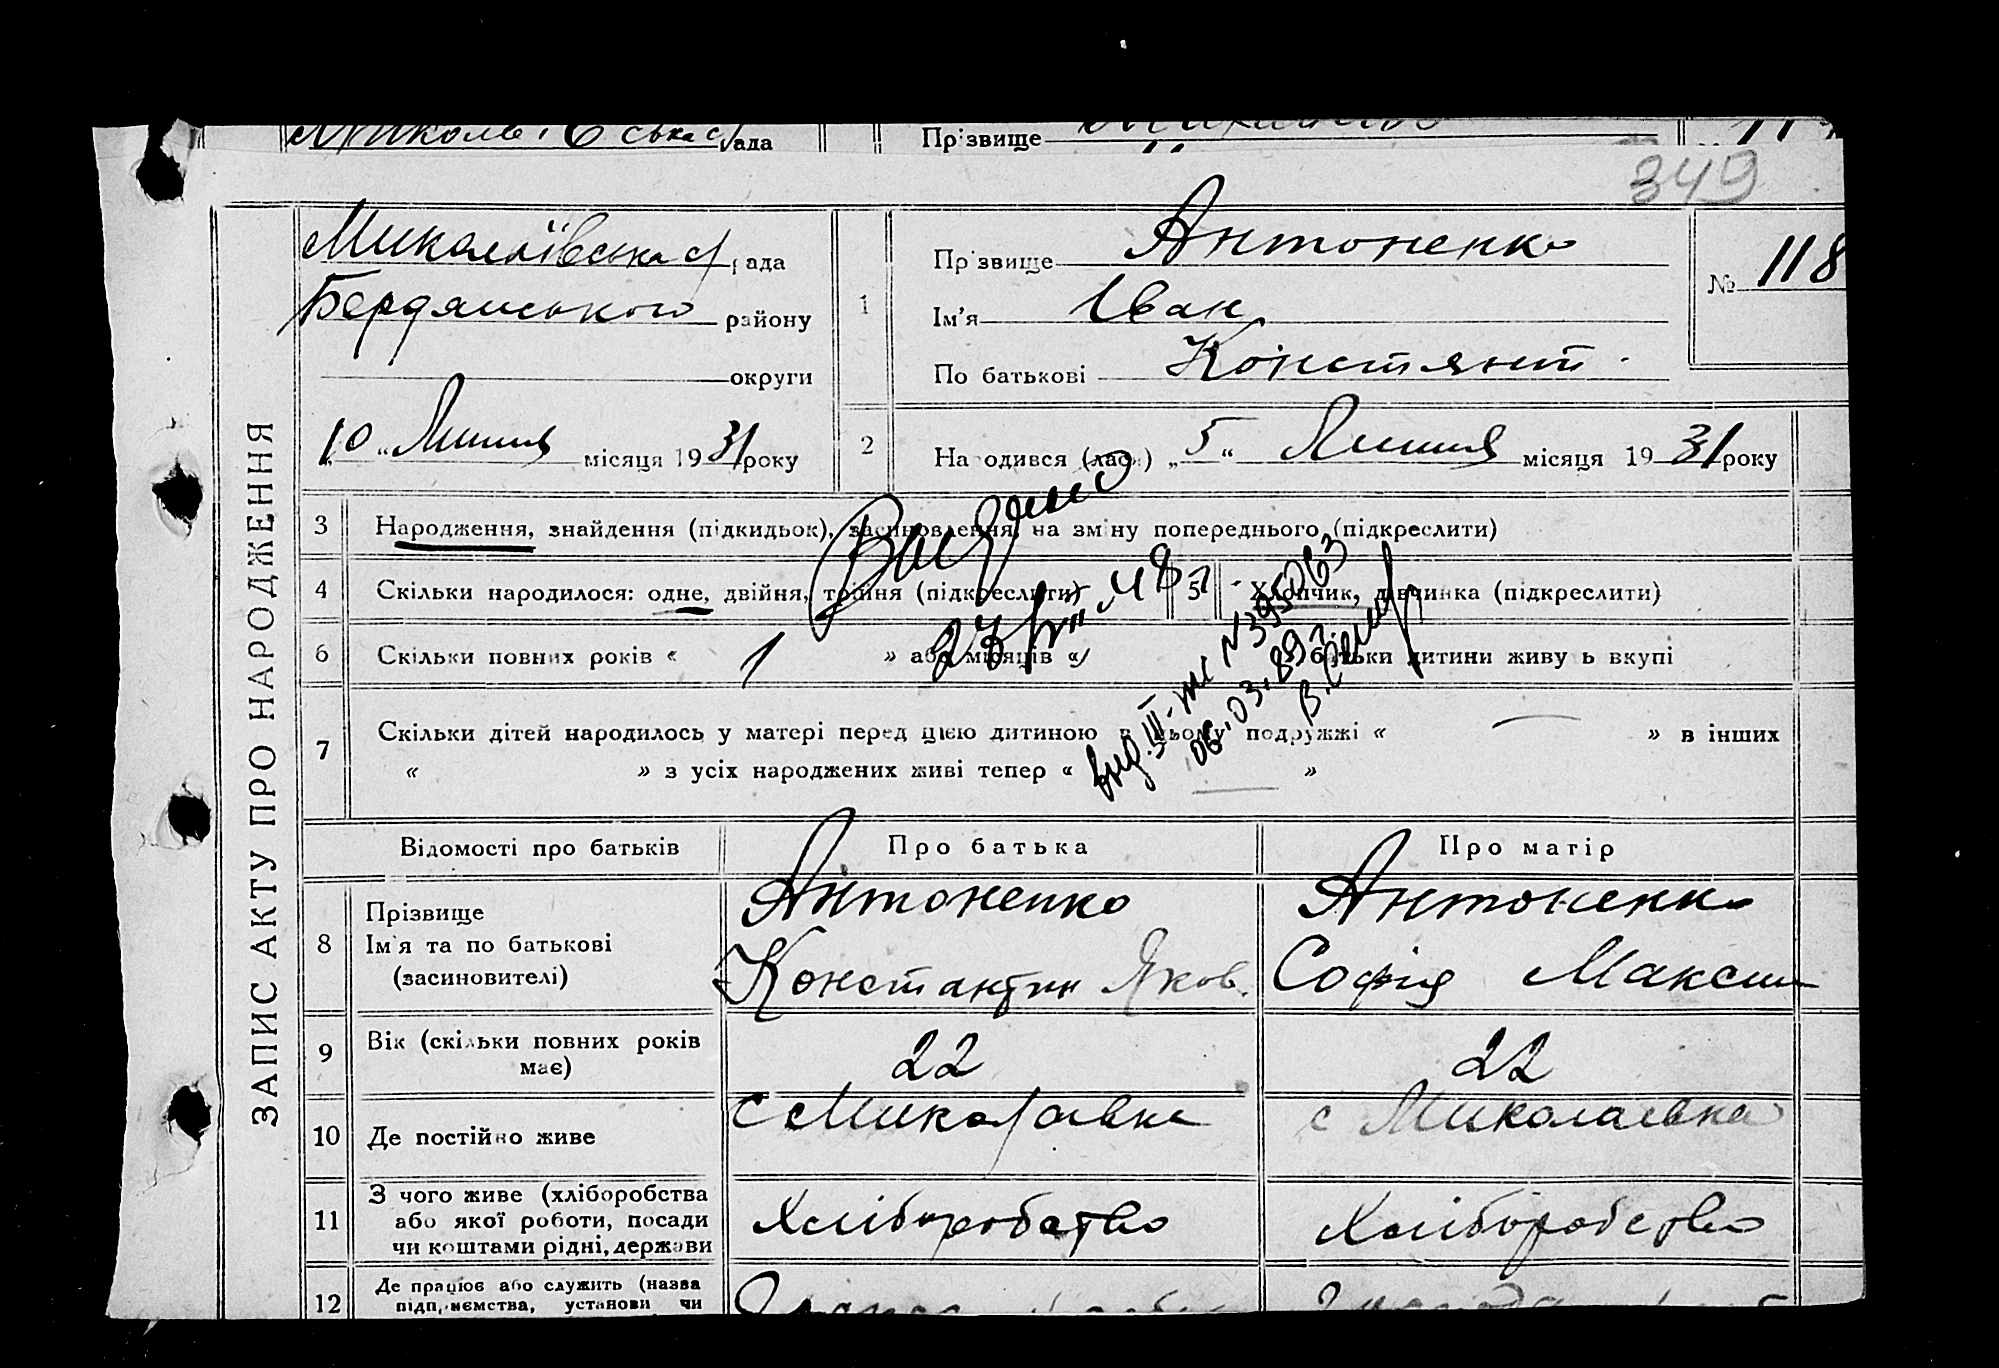 ська с/рада
Прізвище
349
ЗАПИС АКТУ ПРО НАРОДЖЕННЯ
Миколаївська с/рада
Бердянського району
округи
10 „ Липня місяця 1931 року
1
Прізвище Антоненко
Ім'я Іван
По батькові Констянт.
№ 118
2
Народився (лась) „5“ Липня місяця 1931 року
3
Народження, знайдення (підкидьок), засиновлення, на зміну попереднього (підкреслити)
4
Скільки народилося: одне, двійня, трійня (підкреслити)
5
Хлопчик, дівчинка (підкреслити)
6
Скільки повних років « 1 » або місяців « батьки дитини живуть вкупі
7
Скільки дітей народилось у матері перед цією дитиною в цьому подружжі « — » в інших
« » з усіх народжених живі тепер « — »
Видано
23/VII 48
вид. III-ж № 395063
06.03.89
Відомості про батьків
Про батька
Про матір
8
Прізвище
Ім'я та по батькові
(засиновителі)
Антоненко
Константин Яков.
Антоненко
Софія Максим
9
Вік (скільки повних років
має)
22
22
10
Де постійно живе
с Миколаевка
с Миколаевка
11
З чого живе (хліборобства
або якої роботи, посади
чи коштами рідні, держави
Хліборобство
Хліборобство
12
Де працює або служить (назва
підприємства, установи чи